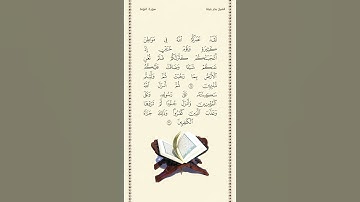 سورة التوبة
لَقَدْ نَصَرَكُمُ اللَّهُ فِي مَوَاطِنَ
كَثِيرَةٍ وَيَوْمَ حُنَيْنٍ إِذْ
أَعْجَبَتْكُمْ كَثْرَتُكُمْ فَلَمْ تُغْنِ
عَنكُمْ شَيْئًا وَضَاقَتْ عَلَيْكُمُ
الْأَرْضُ بِمَا رَحُبَتْ ثُمَّ وَلَّيْتُم
مُّدْبِرِينَ ثُمَّ أَنزَلَ اللَّهُ
سَكِينَتَهُ عَلَىٰ رَسُولِهِ وَعَلَى
الْمُؤْمِنِينَ وَأَنزَلَ جُنُودًا لَّمْ تَرَوْهَا
وَعَذَّبَ الَّذِينَ كَفَرُوا وَذَٰلِكَ جَزَاءُ
الْكَافِرِينَ